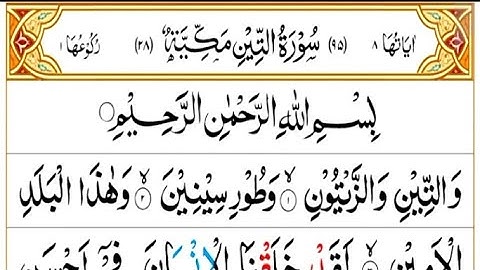 اٰيَاتُهَا ٨ (٩٥) سُوْرَةُ التِّيْنِ مَكِّيَّةٌ (٢٨) رُكُوْعُهَا ١
بِسْمِ اللّٰهِ الرَّحْمٰنِ الرَّحِيْمِ
وَالتِّيْنِ وَالزَّيْتُوْنِ ۙ‏ ١ وَطُوْرِ سِيْنِيْنَ ۙ‏ ٢ وَهٰذَا الْبَلَدِ
الْاَمِيْنِ ۙ‏ ٣ لَقَدْ خَلَقْنَا الْاِنْسَانَ فِيْٓ اَحْسَنِ